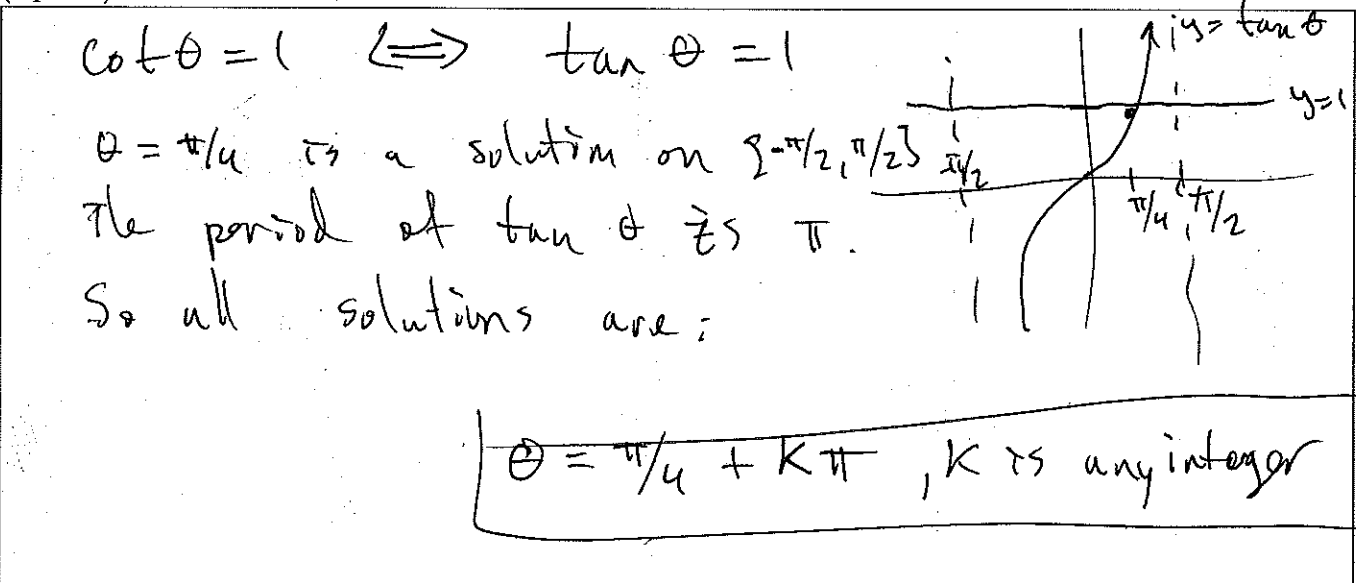 cot θ = 1 <=> tan θ = 1
θ = π/4 is a solution on {-π/2, π/2}
The period of tan θ is π.
So all solutions are:
θ = π/4 + Kπ, K is any integer
y = tan θ
y=1
π/2
π/4
π/2